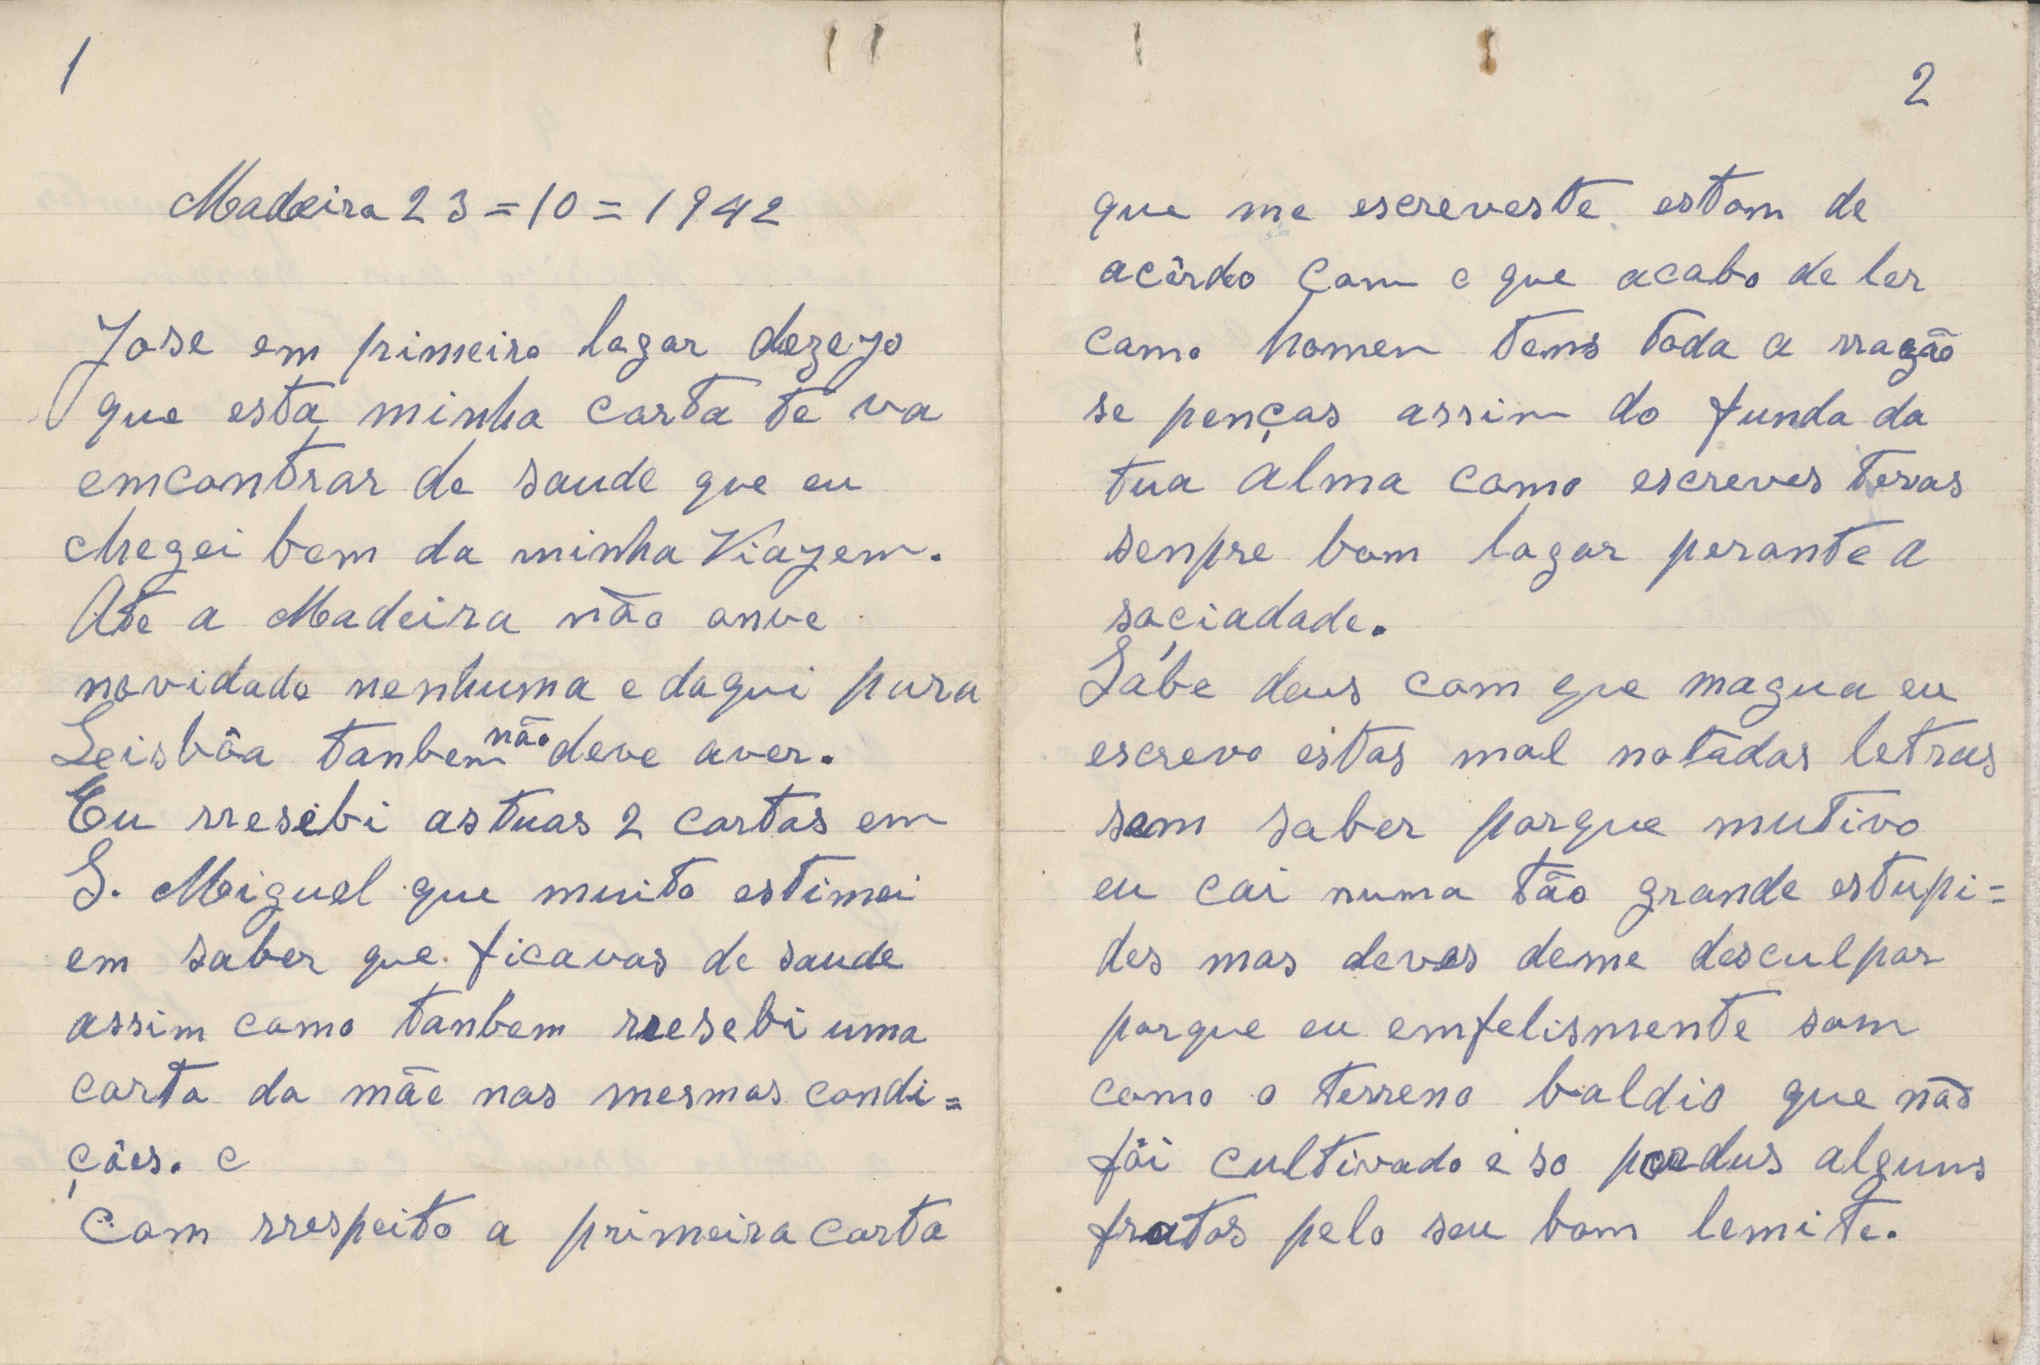 1
Madeira 23=10=1942
Jose em primeiro logar dezeyo
que esta minha carta te va
emcontrar de saude que eu
chegei bem da minha Viayem.
Ate a Madeira não ouve
novidade nenhuma e daqui para
Leisbôa tanbem não deve aver.
Eu rresebi as tuas 2 cartas em
S. Miguel que muito estimei
em saber que ficavas de saude
assim como tanbem rresebi uma
carta da mãe nas mesmas condi=
çães. e
Com rrespeito a primeira carta
2
que me escreveste estom de
acôrdo Com o que acabo de ler
como homen tens toda a rrazão
se pençças assim do fundo da
tua alma como escreves teras
senpre bom logar perante a
sociadade.
Sábe deus com que magua eu
escrevo estas mal notadas letras
sem saber porque mutivo
eu cai numa tão grande estupi=
des mas deves deme desculpar
porque eu emfelismente som
como o terreno baldio que não
fôi cultivado e so perdus alguns
frutos pelo seu bom lemite.